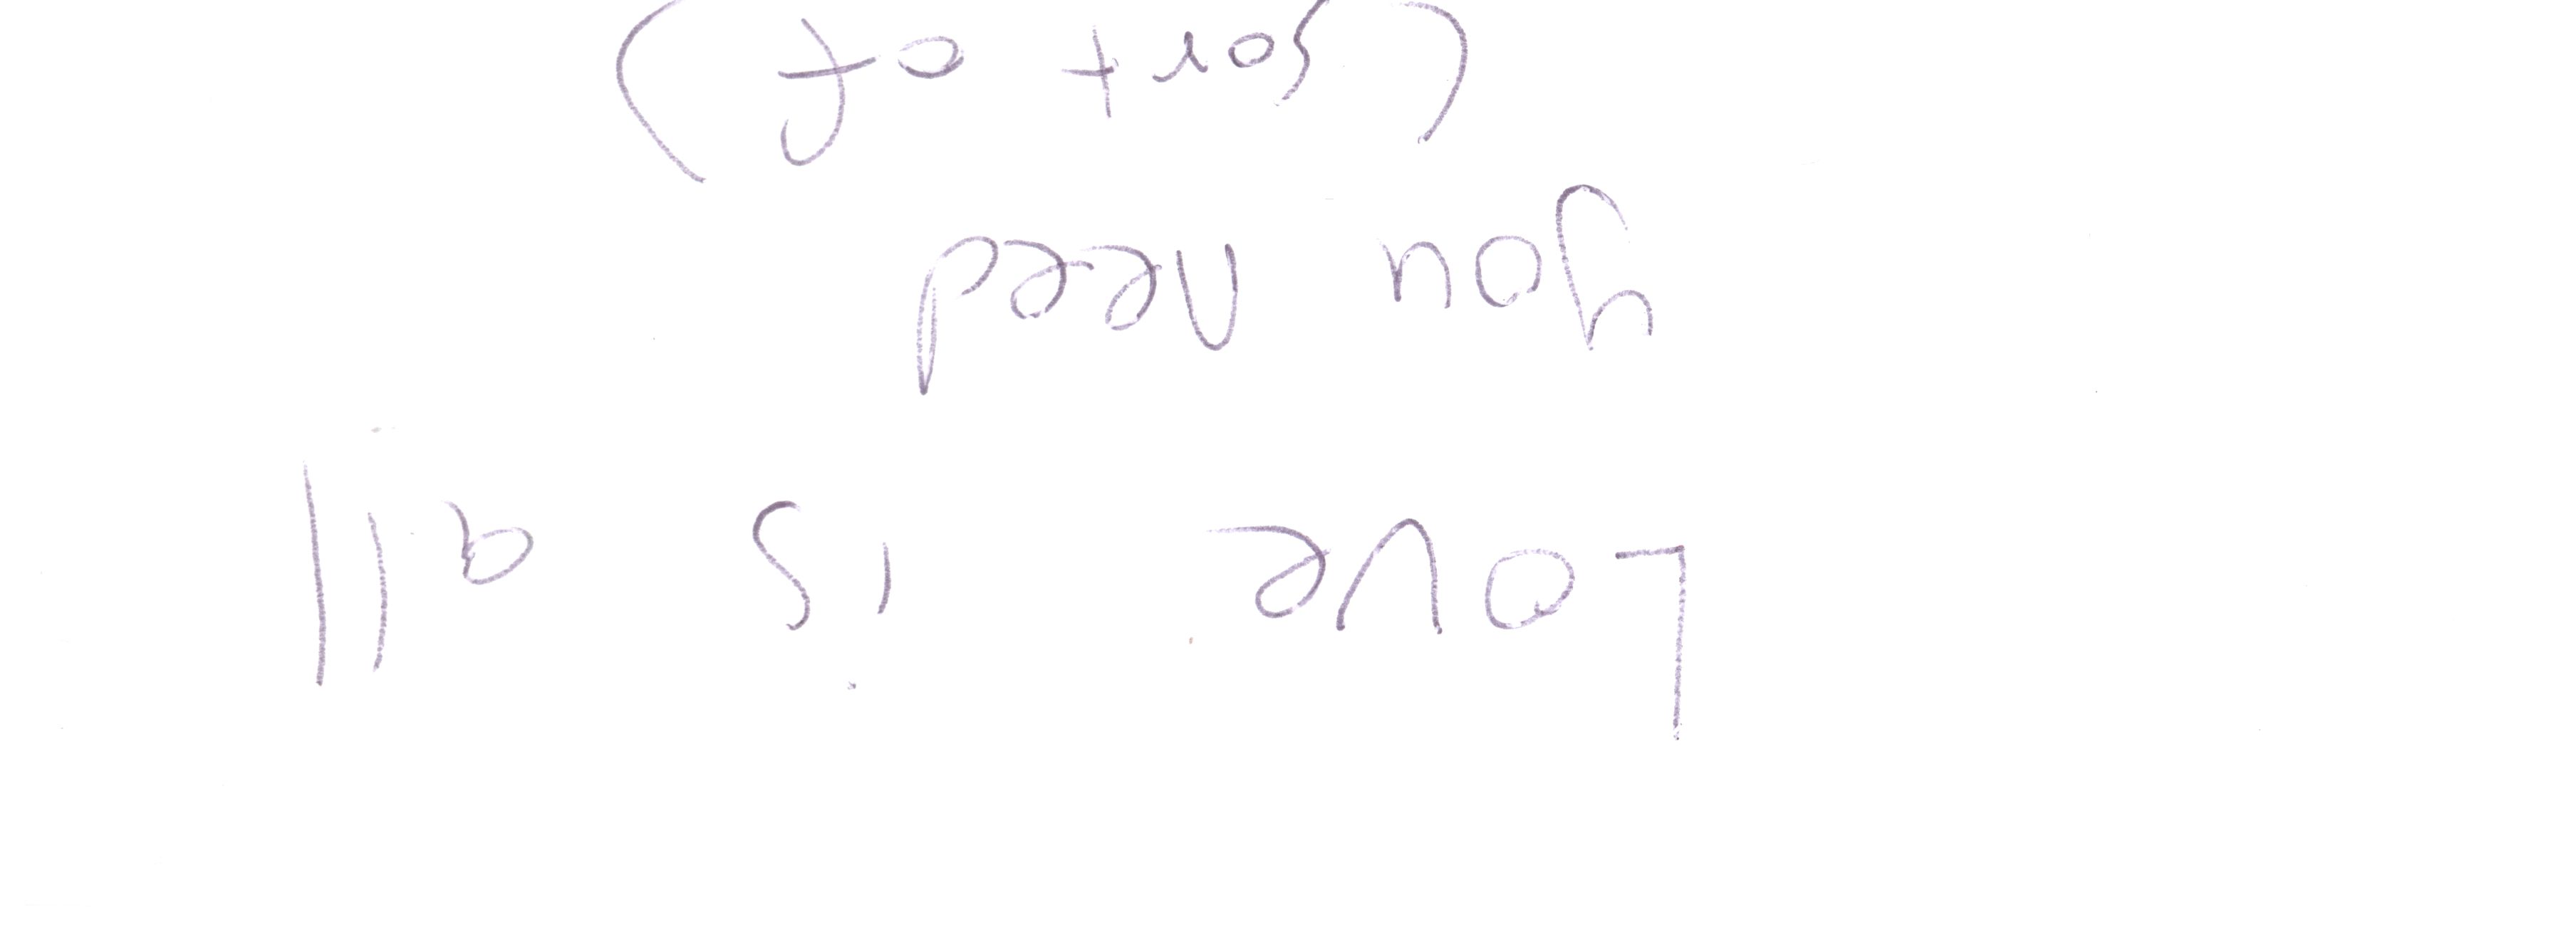 Love is all
you need
(sort of)